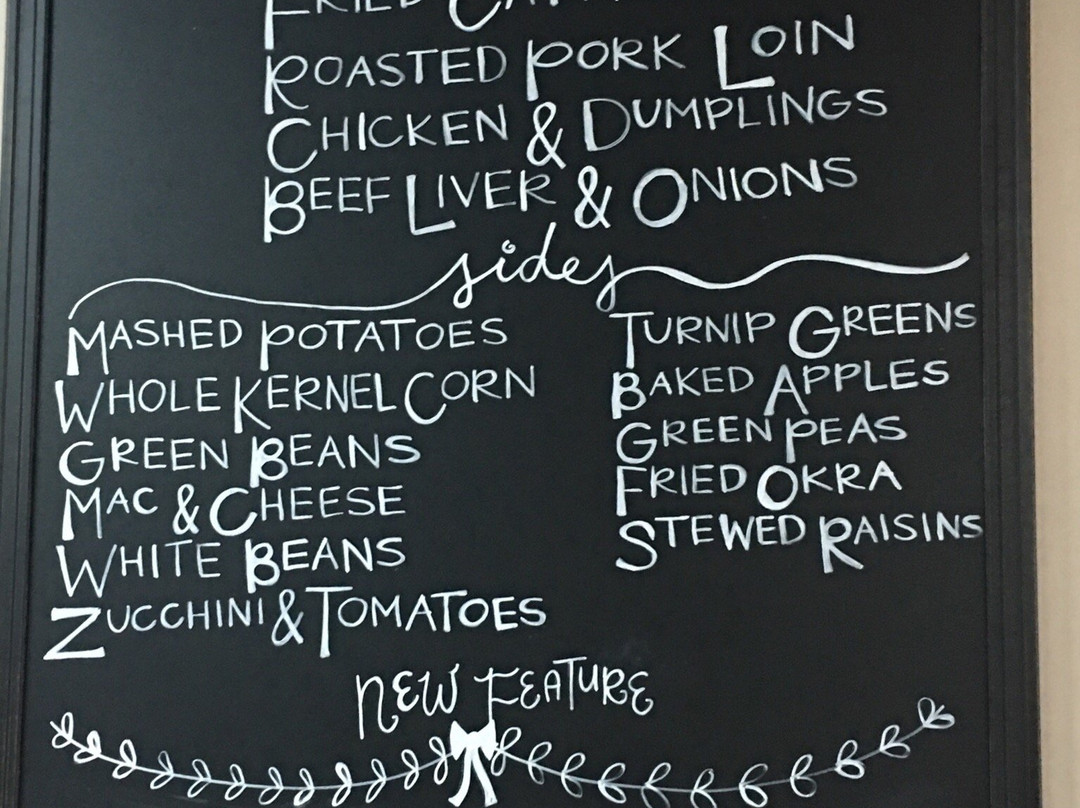 FRIED
ROASTED PORK LOIN
CHICKEN & DUMPLINGS
BEEF LIVER & ONIONS
sides
MASHED POTATOES
WHOLE KERNEL CORN
GREEN BEANS
MAC & CHEESE
WHITE BEANS
ZUCCHINI & TOMATOES
TURNIP GREENS
BAKED APPLES
GREEN PEAS
FRIED OKRA
STEWED RAISINS
NEW FEATURE